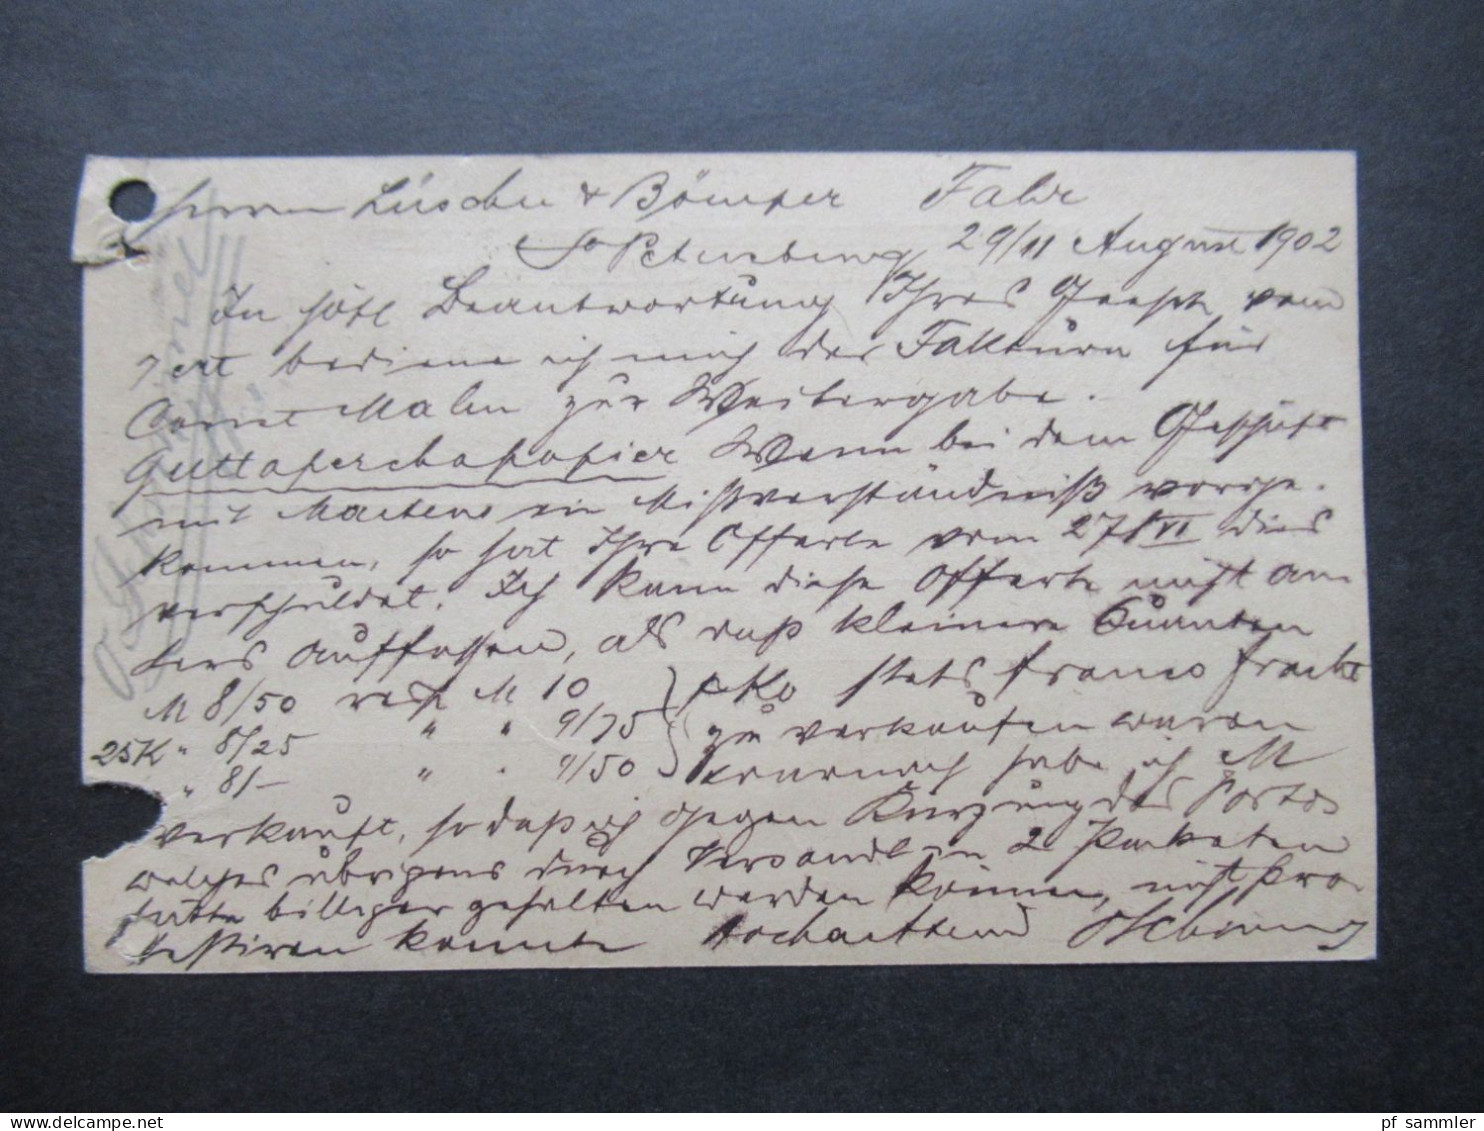 Herren Lüscher & Bömper Fahr
St Petersburg 29/11 August 1902
In höfl Beantwortung Ihres Geehrt vom
bediene ich mich der Fakturen für
Ernst Malm zur Weitergabe.
Guttaperchapapier Wenn bei dem Geschäft
mit Martens ein Mißverständniß vorge-
kommen, so hat Ihre Offerte vom 27/VI dies
verschuldet. Ich kann diese Offerte nicht an
ders auffassen, als daß kleinere Quanten
M 8/50 resp M 10 pKo stets franco Fracht
25K " 8/25 " " 9/75 zu verkaufen waren
" 8/- " " 9/50 demnach habe ich M
verkauft, so daß ich gegen Kürzung des Portos
welches übrigens durch Versandt in 2 Packeten
hätte billiger gehalten werden können, nicht pro-
testiren konnte Hochachtend